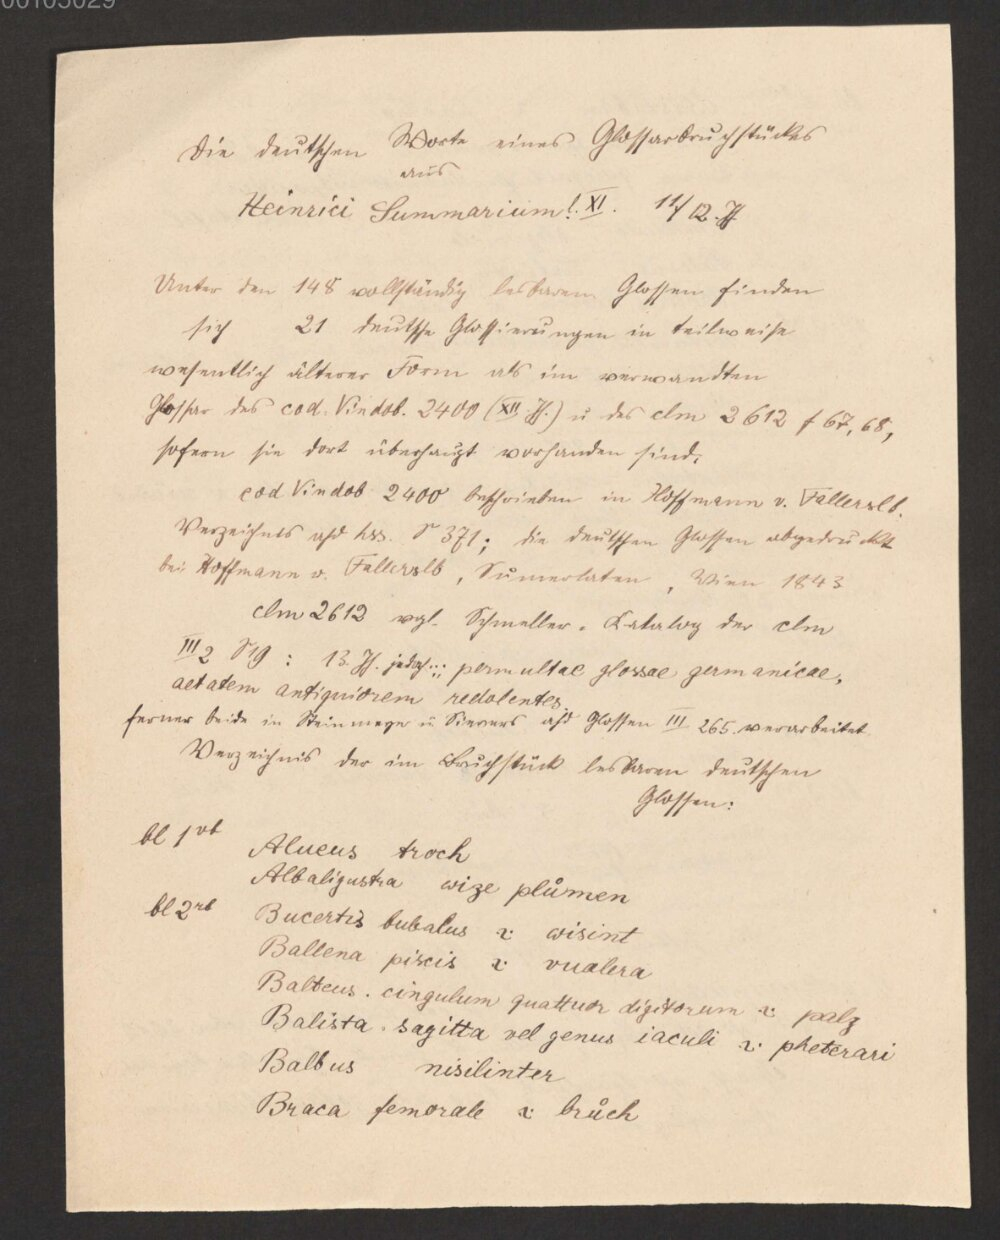 00105029
Die deutschen Worte eines Glossarbruchstückes
aus
Heinrici Summarium l. XI. 11/12. Jh
Unter den 148 vollständig lesbaren Glossen finden
sich 21 deutsche Glossierungen in teilweise
wesentlich älterer Form als im verwandten
Glossar des cod. Vindob. 2400 (XII Jh.) u des clm 2612 f 67, 68,
sofern sie dort überhaupt vorhanden sind.
cod Vindob 2400 beschrieben in Hoffmann v. Fallerslb.
Verzeichnis ahd hss. S 371; die deutschen Glossen abgedruckt
bei Hoffmann v. Fallerslb, Sumerlaten, Wien 1843
clm 2612 vgl. Schmeller. Katalog der clm
III 2 S 19: 13. Jh. jedoch: permultae glossae germanicae,
aetatem antiquiorem redolentes.
ferner beide in Steinmeyer u Sievers ahd Glossen III 265 verarbeitet
Verzeichnis der im Bruchstück lesbaren deutschen
Glossen:
bl 1 vb Alueus troch
Albaligustra wize plůmen
bl 2 rb Bucertis bubalus i: wisint
Ballena piscis i: vualera
Balteus. cingulum quattuor digitorum i: palz
Balista. sagitta vel genus iaculi i: pheterari
Balbus nisilinter
Braca femorale i: brůch